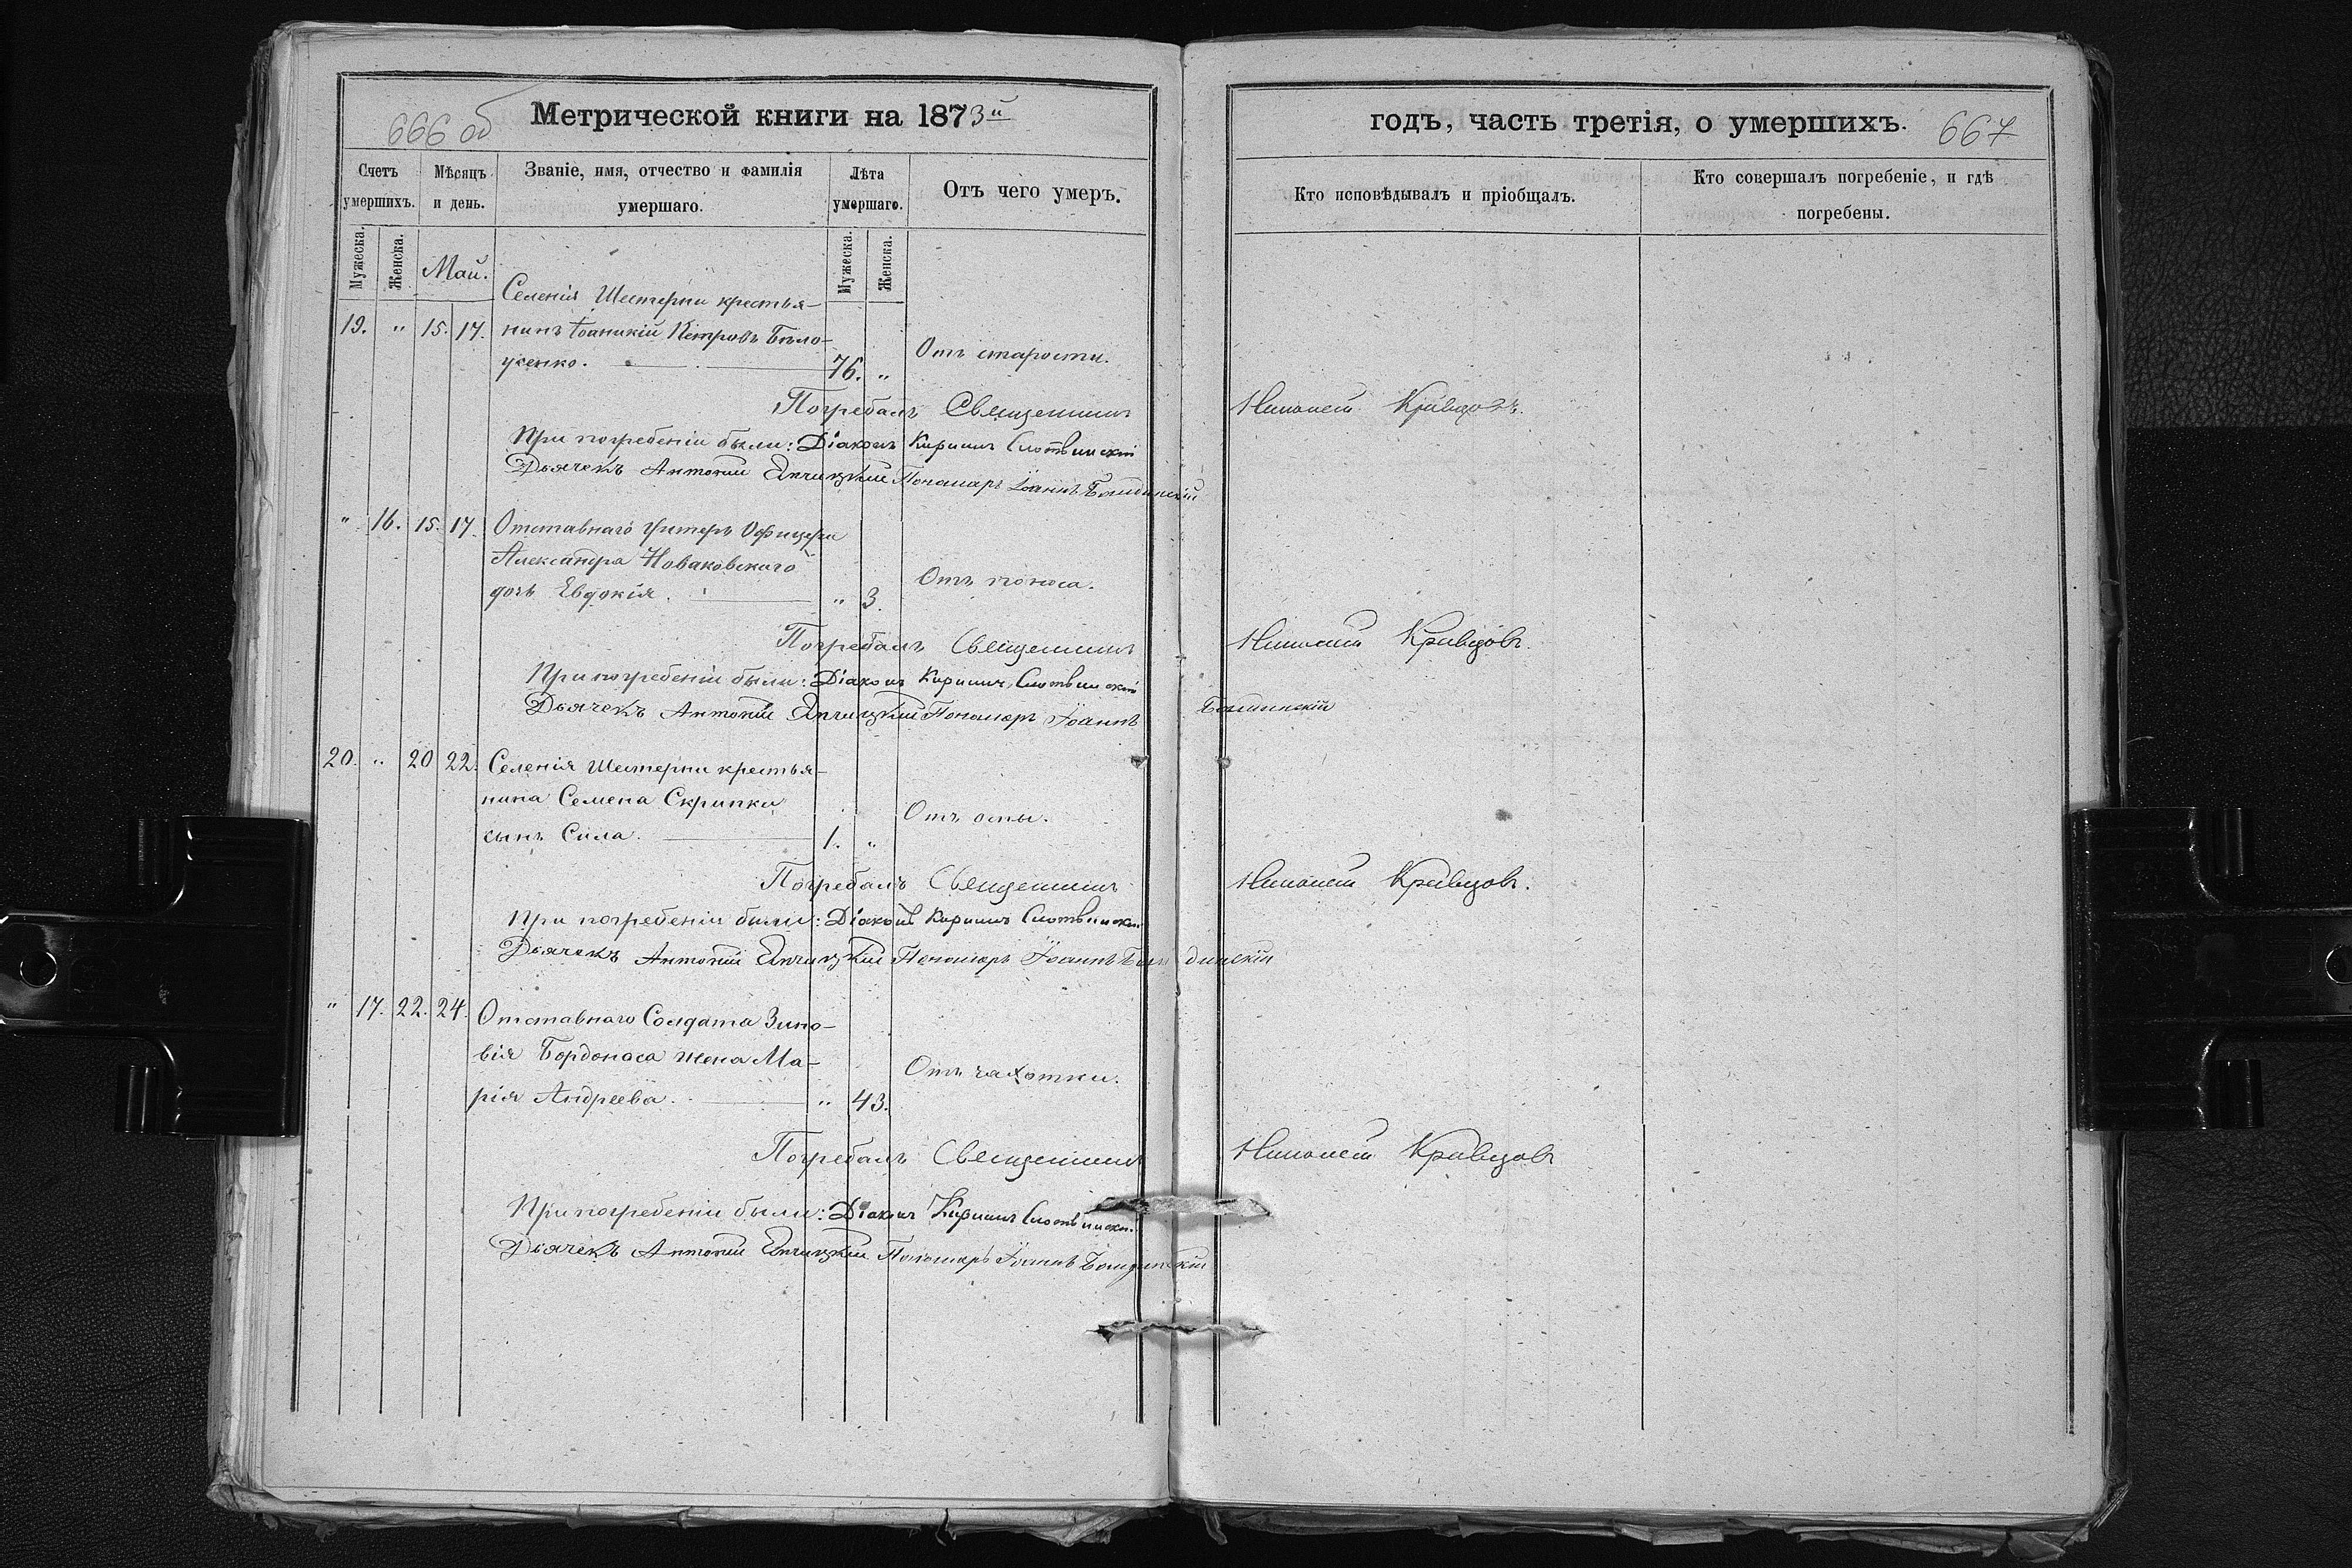 666 об
Метрической книги на 1873й
Счетъ умершихъ.
Мѣсяцъ и день.
Званіе, имя, отчество и фамилія умершаго.
Лѣта умершаго.
Отъ чего умеръ.
Мужеска.
Женска.
Май.
Мужеска.
Женска.
Селенія Шестерни крестья-
19. " 15. 17. нинъ Іоаникій Петровъ Бѣло-
усенко. 76. " Отъ старости.
Погребалъ Священникъ Николай Кривцовъ.
При погребеніи были: Діаконъ Кирилъ Слотвинскій
Дьячекъ Антоній Пономарь Іоаннъ
" 16. 15. 17. Отставнаго Унтеръ Офицера
Александра Новаковскаго
дочь Евдокія. " 3. Отъ поноса.
Погребалъ Священникъ Николай Кривцовъ.
При погребеніи были: Діаконъ Кирилъ Слотвинскій
Дьячекъ Антоній Пономарь Іоаннъ
20. " 20 22. Селенія Шестерни крестья-
нина Семена Скрипки
сынъ Сила. 1. " Отъ оспы.
Погребалъ Священникъ Николай Кривцовъ.
При погребеніи были: Діаконъ Кирилъ Слотвинскій
Дьячекъ Антоній Пономарь Іоаннъ
" 17. 22. 24. Отставнаго Солдата Зино-
вія Бордоноса жена Ма-
рія Андреева. " 43. Отъ чахотки.
Погребалъ Священникъ Николай Кривцовъ
При погребеніи были: Діаконъ Кирилъ Слотвинскій
Дьячекъ Антоній Пономарь Іоаннъ
годъ, часть третія, о умершихъ. 667
Кто исповѣдывалъ и пріобщалъ.
Кто совершалъ погребеніе, и гдѣ погребены.